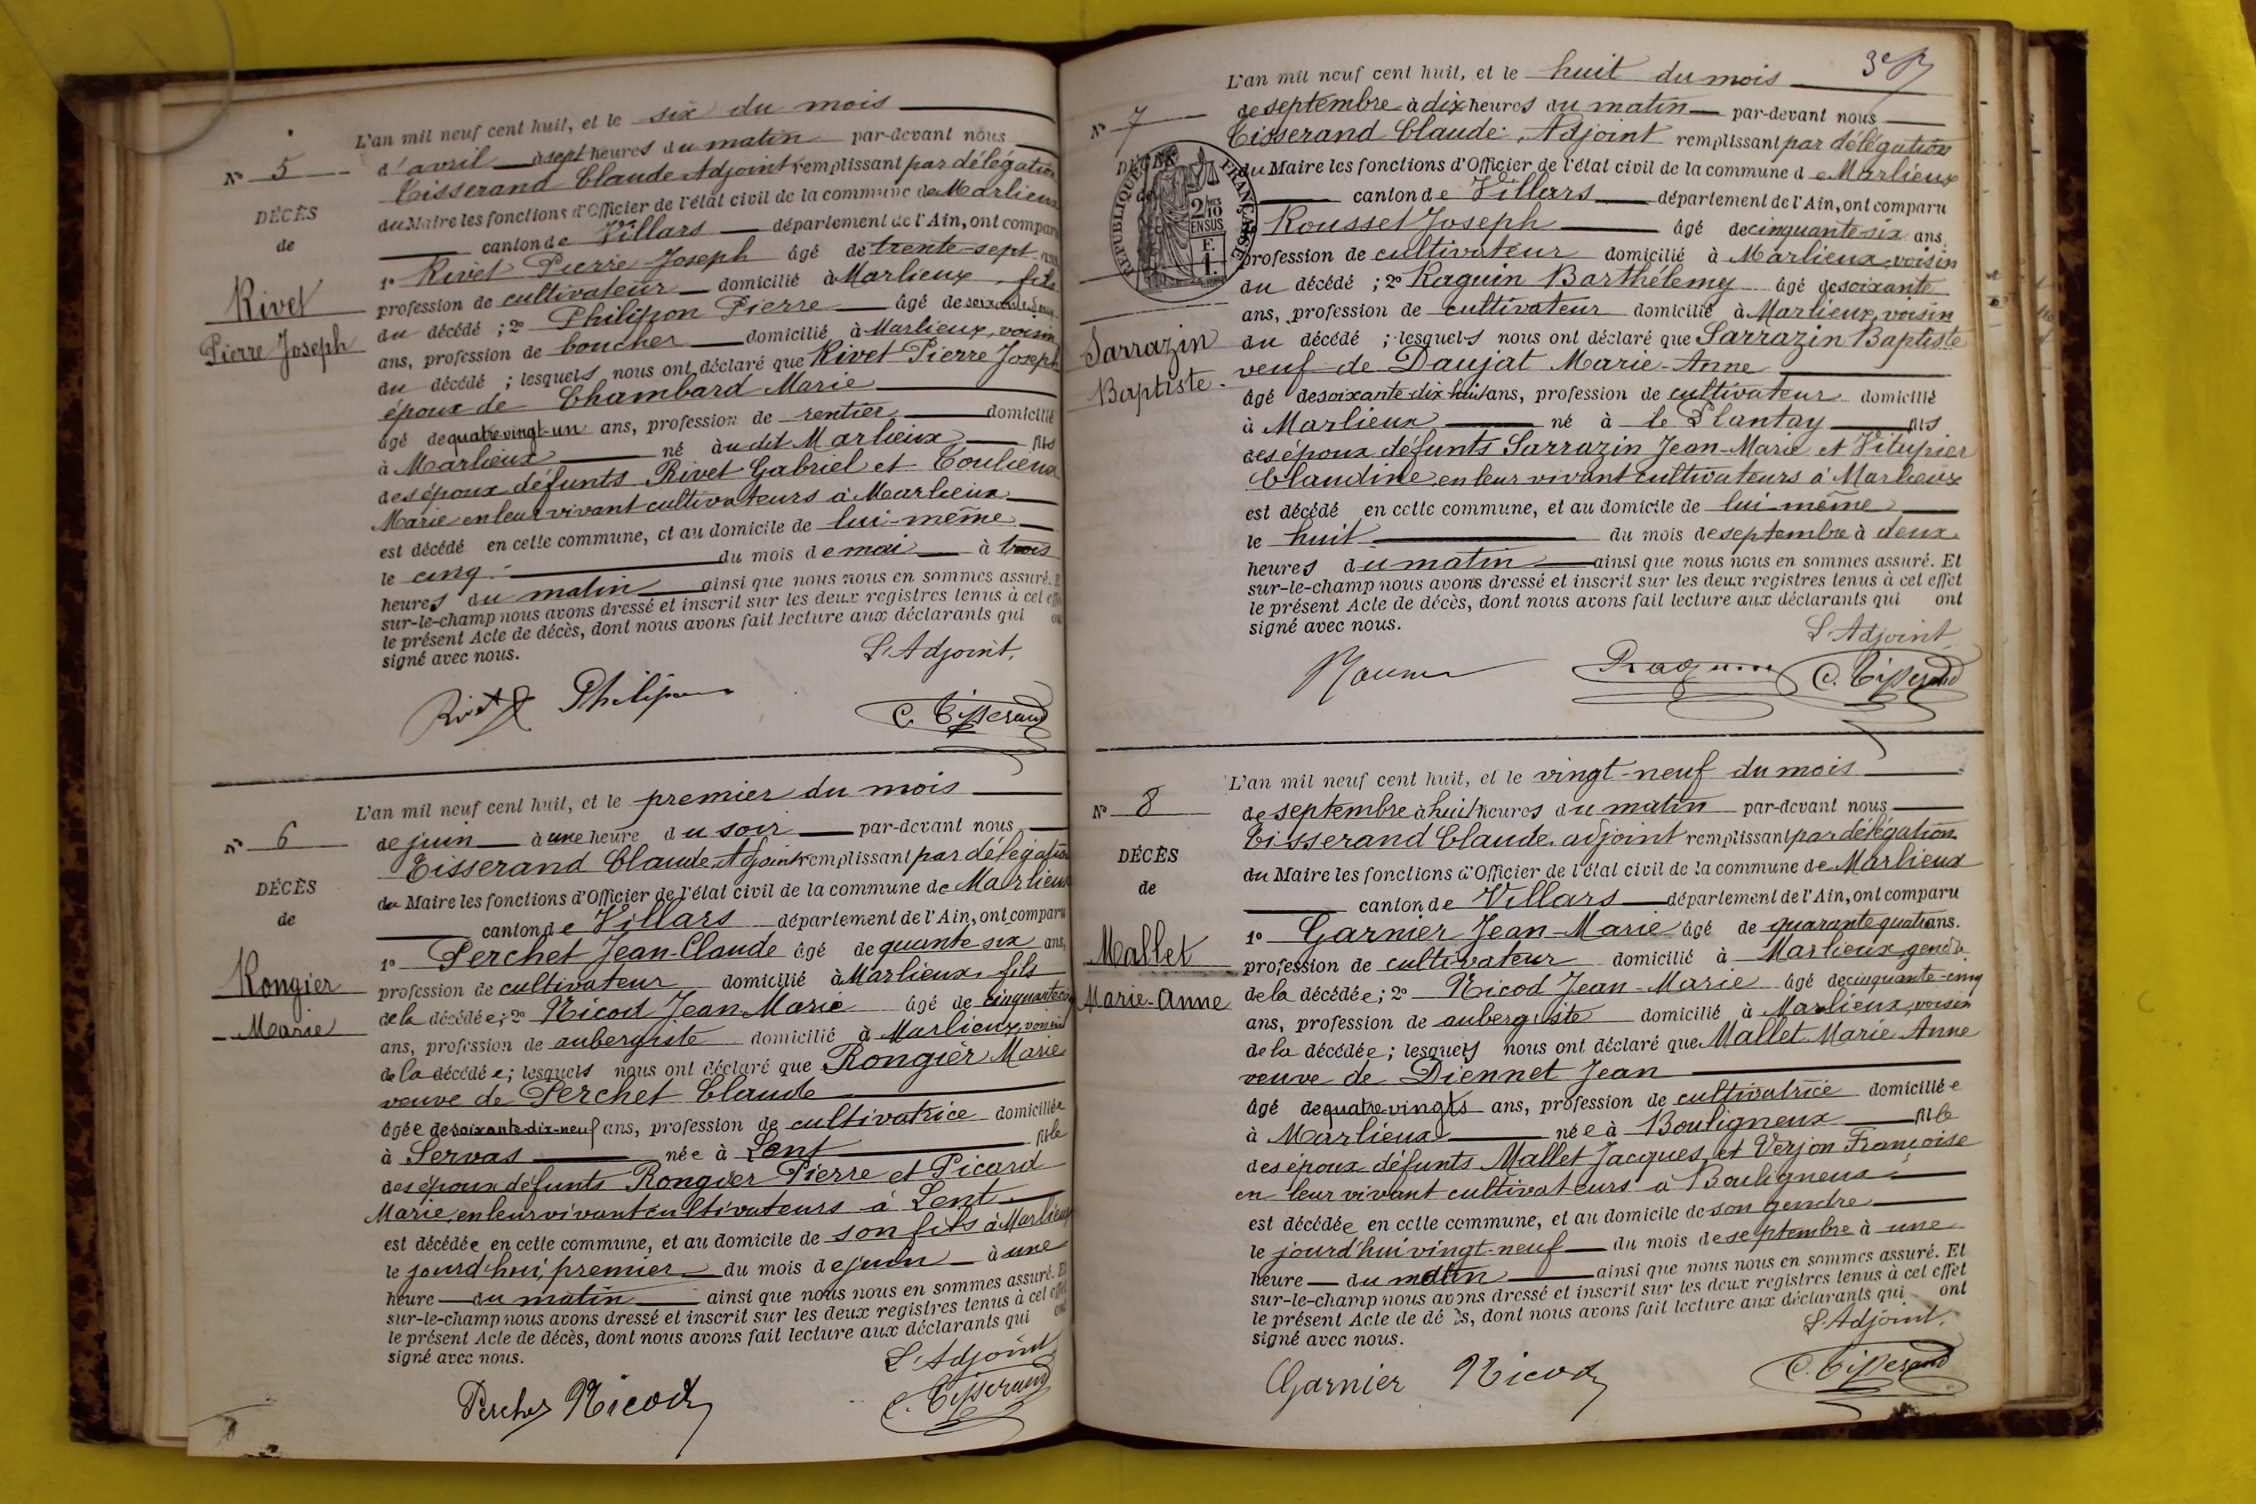 L'an mil neuf cent huit, et le six du mois
d'avril à sept heures du matin par-devant nous
Tisserand Claude Adjoint remplissant par délégation
du Maire les fonctions d'Officier de l'état civil de la commune de Marlieux
canton de Villars département de l'Ain, ont comparu
1° Rivet Pierre Joseph âgé de trente-sept ans
profession de cultivateur domicilié à Marlieux, fils
du décédé ; 2° Philipon Pierre âgé de
ans, profession de boucher domicilié à Marlieux, voisin
du décédé ; lesquels nous ont déclaré que Rivet Pierre Joseph
époux de Chambard Marie
âgé de quatre-vingt-un ans, profession de rentier domicilié
à Marlieux né à udit Marlieux fils
des époux défunts Rivet Gabriel et Toulieux
Marie en leur vivant cultivateurs à Marlieux
est décédé en cette commune, et au domicile de lui-même
le cinq du mois de mai à trois
heures du matin ainsi que nous nous en sommes assuré. Et
sur-le-champ nous avons dressé et inscrit sur les deux registres tenus à cet effet
le présent Acte de décès, dont nous avons fait lecture aux déclarants qui ont
signé avec nous.
L'Adjoint,
Rivet Philipon C. Tisserand
N° 5
DÉCÈS
de
Rivet
Pierre Joseph
L'an mil neuf cent huit, et le premier du mois
de juin à une heure du soir par-devant nous
Tisserand Claude, Adjoint remplissant par délégation
du Maire les fonctions d'Officier de l'état civil de la commune de Marlieux
canton de Villars département de l'Ain, ont comparu
1° Perchet Jean-Claude âgé de quante six ans,
profession de cultivateur domicilié à Marlieux, fils
de la décédée ; 2° Nicod Jean Marie âgé de cinquante cinq
ans, profession de aubergiste domicilié à Marlieux, voisin
de la décédée ; lesquels nous ont déclaré que Rongier Marie
veuve de Perchet Claude
âgée de soixante-dix-neuf ans, profession de cultivatrice domiciliée
à Servas née à Lent fille
des époux défunts Rongier Pierre et Picard
Marie, en leur vivant cultivateurs à Lent
est décédée en cette commune, et au domicile de son fils à Marlieux
le jourd'hui, premier du mois de juin à une
heure du matin ainsi que nous nous en sommes assuré. Et
sur-le-champ nous avons dressé et inscrit sur les deux registres tenus à cet effet
le présent Acte de décès, dont nous avons fait lecture aux déclarants qui ont
signé avec nous.
L'Adjoint
Perchet Nicod C. Tisserand
N° 6
DÉCÈS
de
Rongier
Marie
L'an mil neuf cent huit, et le huit du mois
de septembre à dix heures du matin par-devant nous
Tisserand Claude, Adjoint remplissant par délégation
du Maire les fonctions d'Officier de l'état civil de la commune de Marlieux
canton de Villars département de l'Ain, ont comparu
Rousset Joseph âgé de cinquante-six ans
profession de cultivateur domicilié à Marlieux, voisin
du décédé ; 2° Raquin Barthélemy âgé de soixante
ans, profession de cultivateur domicilié à Marlieux, voisin
du décédé ; lesquels nous ont déclaré que Sarrazin Baptiste
veuf de Daujat Marie-Anne
âgé de soixante-dix-huit ans, profession de cultivateur domicilié
à Marlieux né à le Plantay fils
des époux défunts Sarrazin Jean-Marie et Vitupier
Claudine en leur vivant cultivateurs à Marlieux
est décédé en cette commune, et au domicile de lui-même
le huit du mois de septembre à deux
heures du matin ainsi que nous nous en sommes assuré. Et
sur-le-champ nous avons dressé et inscrit sur les deux registres tenus à cet effet
le présent Acte de décès, dont nous avons fait lecture aux déclarants qui ont
signé avec nous.
L'Adjoint
Raquin C. Tisserand
N° 7
DÉCÈS
de
RÉPUBLIQUE FRANÇAISE
2/10
EN SUS
Sarrazin
Baptiste
L'an mil neuf cent huit, et le vingt-neuf du mois
de septembre à huit heures du matin par-devant nous
Tisserand Claude, adjoint remplissant par délégation
du Maire les fonctions d'Officier de l'état civil de la commune de Marlieux
canton de Villars département de l'Ain, ont comparu
1° Garnier Jean-Marie âgé de quarante quatre ans.
profession de cultivateur domicilié à Marlieux, gendre
de la décédée ; 2° Nicod Jean-Marie âgé de cinquante-cinq
ans, profession de aubergiste domicilié à Marlieux, voisin
de la décédée ; lesquels nous ont déclaré que Mallet Marie Anne
veuve de Diennet Jean
âgé de quatre-vingts ans, profession de cultivatrice domiciliée
à Marlieux née à Bouligneux fille
des époux défunts Mallet Jacques, et Verjon Françoise
en leur vivant cultivateurs à Bouligneux
est décédée en cette commune, et au domicile de son gendre
le jourd'hui vingt-neuf du mois de septembre à une
heure du matin ainsi que nous nous en sommes assuré. Et
sur-le-champ nous avons dressé et inscrit sur les deux registres tenus à cet effet
le présent Acte de décès, dont nous avons fait lecture aux déclarants qui ont
signé avec nous.
L'Adjoint.
Garnier Nicod C. Tisserand
N° 8
DÉCÈS
de
Mallet
Marie-Anne